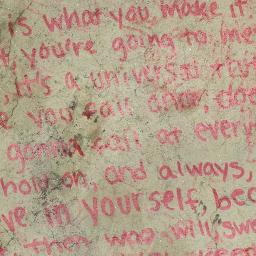 is what you make it.
you're going to me
it's a universal
you fall
gonna fail at every
hold on, and always,
ve in yourself, bec
then who will, swe